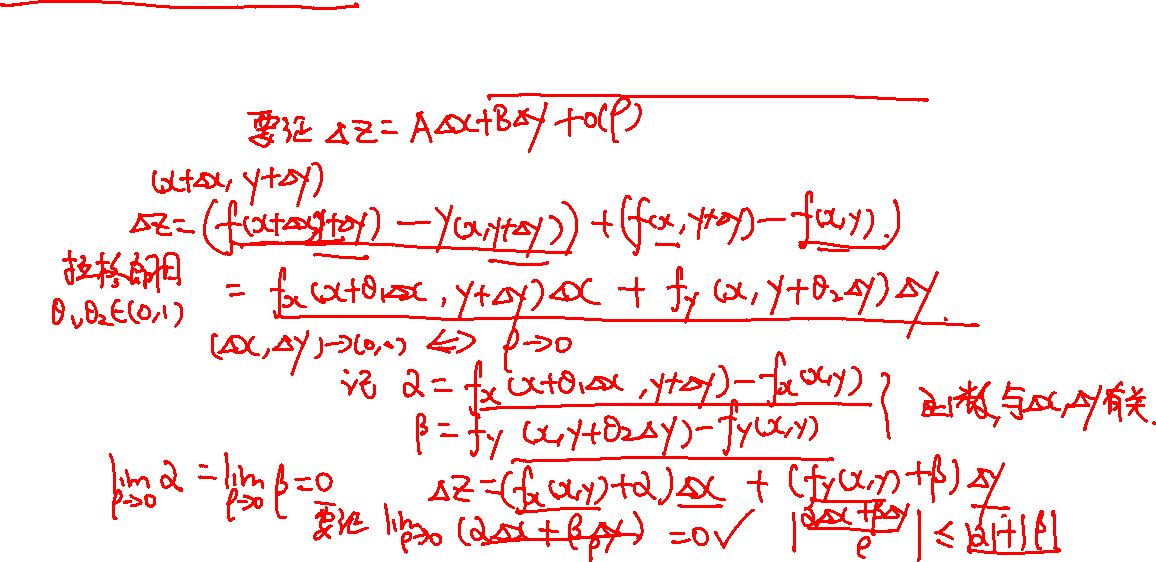 要证 Δz = AΔx+BΔy+o(ρ)
(x+Δx, y+Δy)
Δz = (f(x+Δx,y+Δy) - y(x,y+Δy)) + (f(x,y+Δy) - f(x,y).)
拉格朗日 = f_x(x+θ₁Δx, y+Δy)Δx + f_y(x, y+θ₂Δy)Δy.
θ₁,θ₂∈(0,1)
(Δx,Δy)→(0,0) ⟺ ρ→0
记 α = f_x(x+θ₁Δx, y+Δy) - f_x(x,y)
β = f_y(x,y+θ₂Δy) - f_y(x,y) } 与Δx,Δy有关.
lim_{ρ→0} α = lim_{ρ→0} β = 0 Δz = (f_x(x,y)+α)Δx + (f_y(x,y)+β)Δy
要证 lim_{ρ→0} (αΔx+βΔy)/ρ = 0 ✓ |(αΔx+βΔy)/ρ| ≤ |α|+|β|